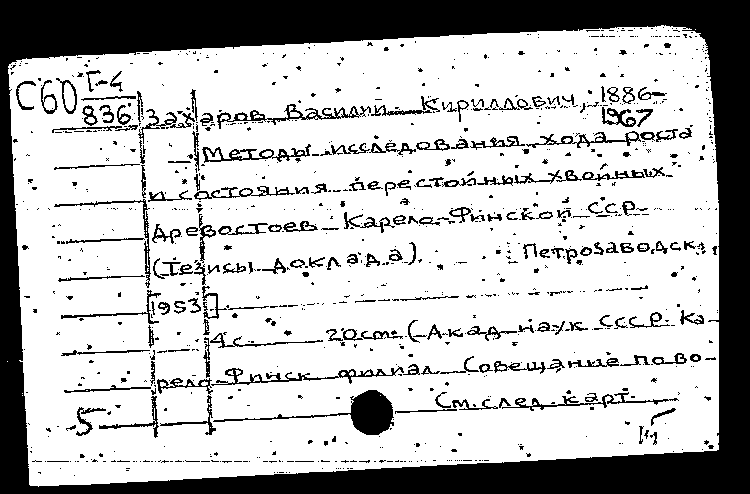 С60 Т-4
836
Захаров, Василий Кириллович, 1886-
1967
Методы исследования хода роста
и состояния перестойных хвойных
древостоев Карело-Финской ССР.
(Тезисы доклада) Петрозаводск,
[1953]
4с. 20cm. (Акад. наук СССР. Ка-
рело-Финск филиал. Совещание по во-
См. след. карт.
5